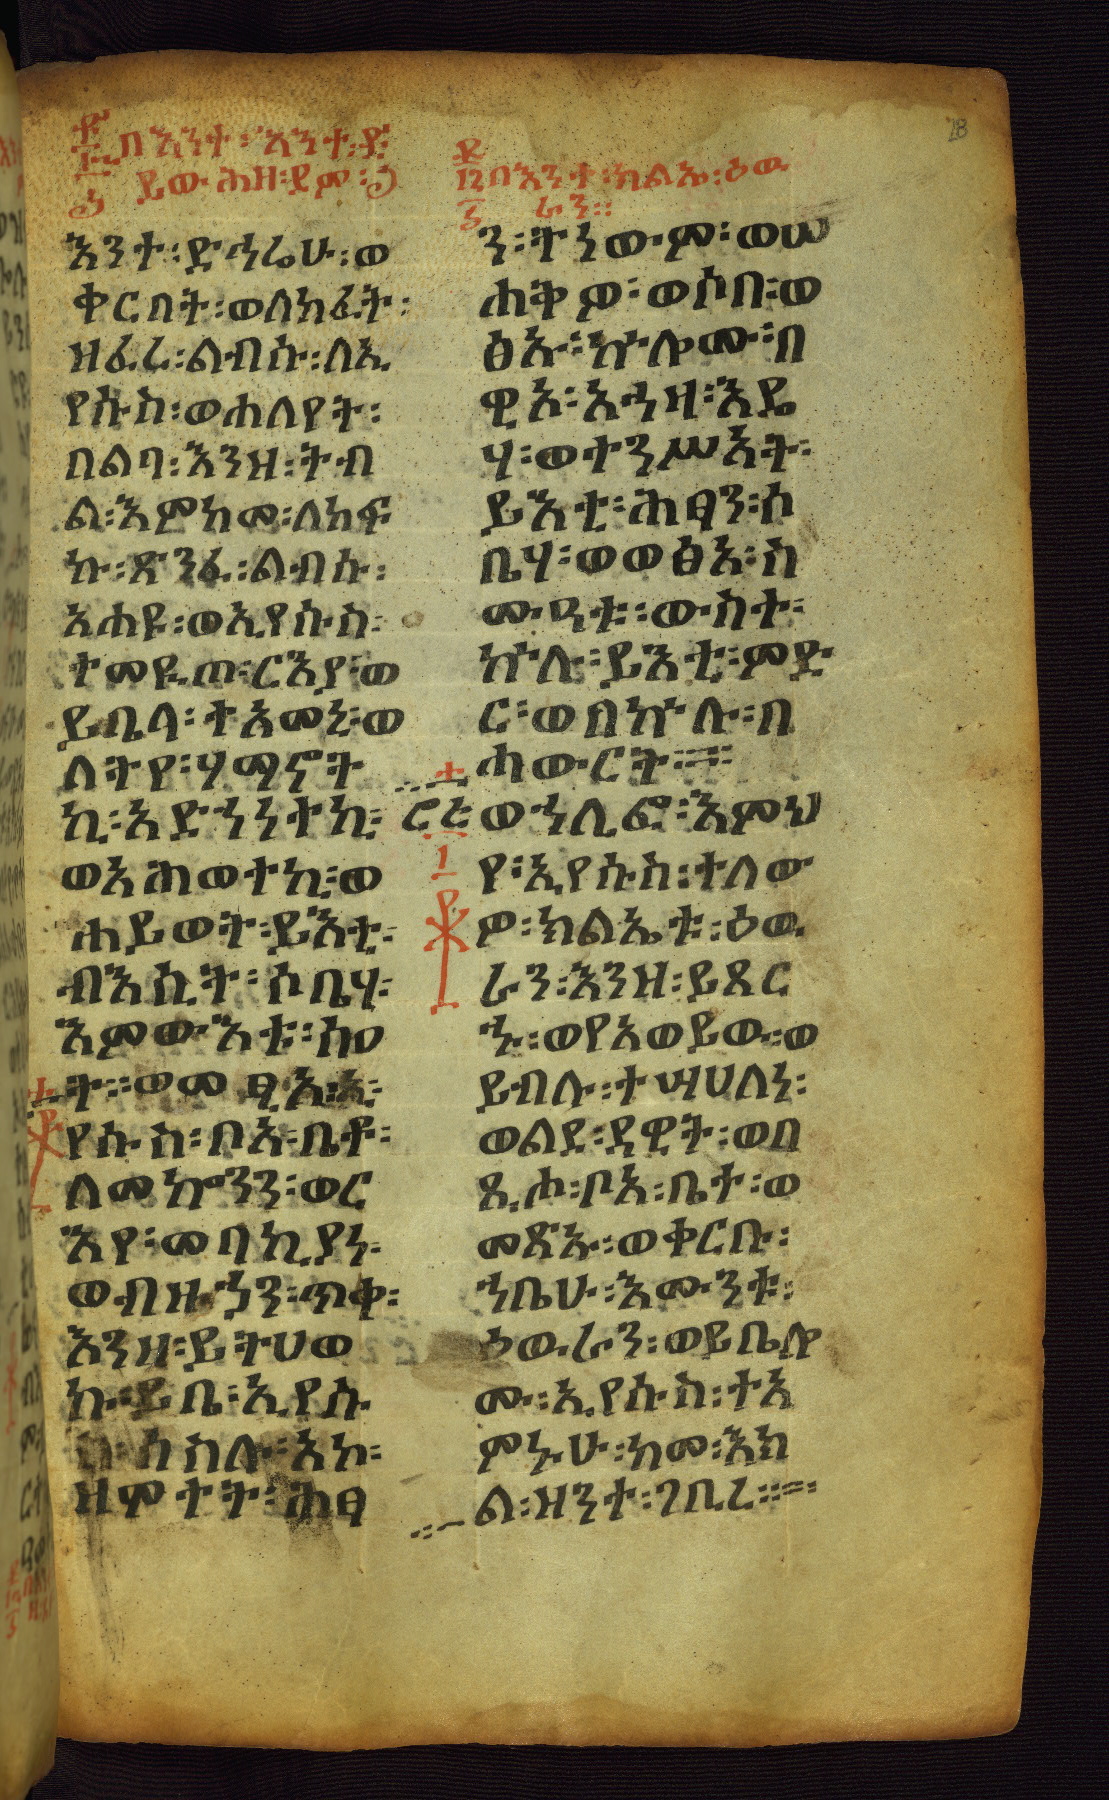 በእንተ፡እንተ፡ደ
ይውሕዘ፡ደም፡
እንተ፡ድኅሬሁ፡ወ
ቀርበት፡ወለከፈት፡
ዘፈረ፡ልብሱ፡ለኢ
የሱስ፡ወሐለየት፡
በልባ፡እንዘ፡ትብ
ል፡እምከመ፡ለከፍ
ኩ፡ጽንፈ፡ልብሱ፡
አሐዩ፡ወኢየሱስ፡
ተመይጠ፡ርእያ፡ወ
ይቤላ፡ተአመኒ፡ወ
ለትየ፡ሃማኖት
ኪ፡አድኀነተኪ፡
ወአሕወተኪ፡ወ
ሐይወት፡ይእቲ፡
ብእሲት፡ሶቤሃ፡
እምውእቱ፡ሰዐ
ት፡፡ወመፂኦ፡ኢ
የሱስ፡ቦአ፡ቤቶ፡
ለመኰንን፡ወር
እየ፡መባኪያነ፡
ወብዙኃን፡ጥቀ፡
እንዘ፡ይትሀወ
ኩ፡ይቤ፡ኢየሱ
ስ፡ሰስሉ፡አኮ፡
ዘሞተት፡ሕፃ
በእንተ፡ክልኤ፡ዕዉ
ራን፡፡
ን፡ትነውም፡ወሠ
ሐቅዎ፡ወሶበ፡ወ
ፅኡ፡ኵሎሙ፡በ
ዊኦ፡አኃዛ፡እዴ
ሃ፡ወተንሥአት፡
ይእቲ፡ሕፃን፡ሶ
ቤሃ፡ወወፅአ፡ስ
ሙዓቱ፡ውስተ፡
ኵሉ፡ይእቲ፡ምድ
ር፡ወበኵሉ፡በ
ሓውርት፡፡
ወኀሊፎ፡እምህ
የ፡ኢየሱስ፡ተለው
ዎ፡ክልኤቱ፡ዕዉ
ራን፡እንዘ፡ይጸር
ኁ፡ወየአወይዉ፡ወ
ይብሉ፡ተሣሀለነ፡
ወልደ፡ዳዊት፡ወበ
ጺሖ፡ቦአ፡ቤተ፡ወ
መጽኡ፡ወቀርቡ፡
ኀቤሁ፡እሙንቱ፡
ዕዉራን፡ወይቤሎ
ሙ፡ኢየሱስ፡ተአ
ምኑሁ፡ከመ፡እክ
ል፡ዘንተ፡ገቢረ፡፡